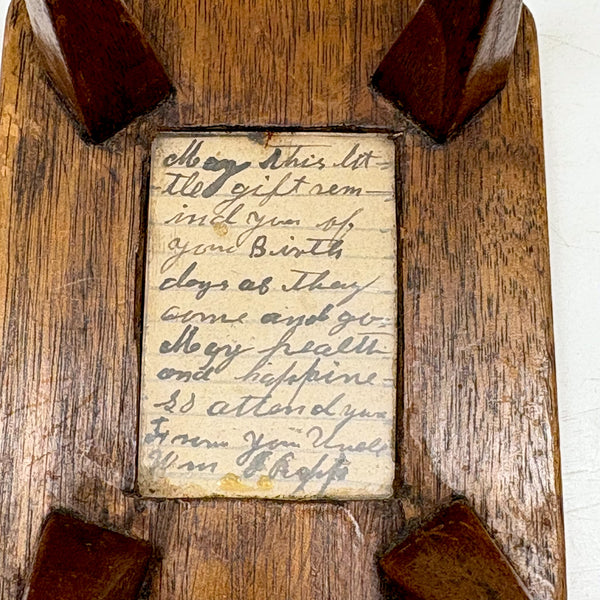 May this lit=
tle gift rem=
ind you of
you Birth
days as they
come and go.
May health
and happine=
ss attend you
From you Uncle
Wm